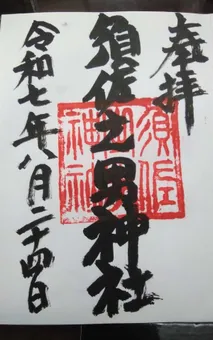 奉拝
須佐之男神社
令和七年八月二十四日
須佐
神社